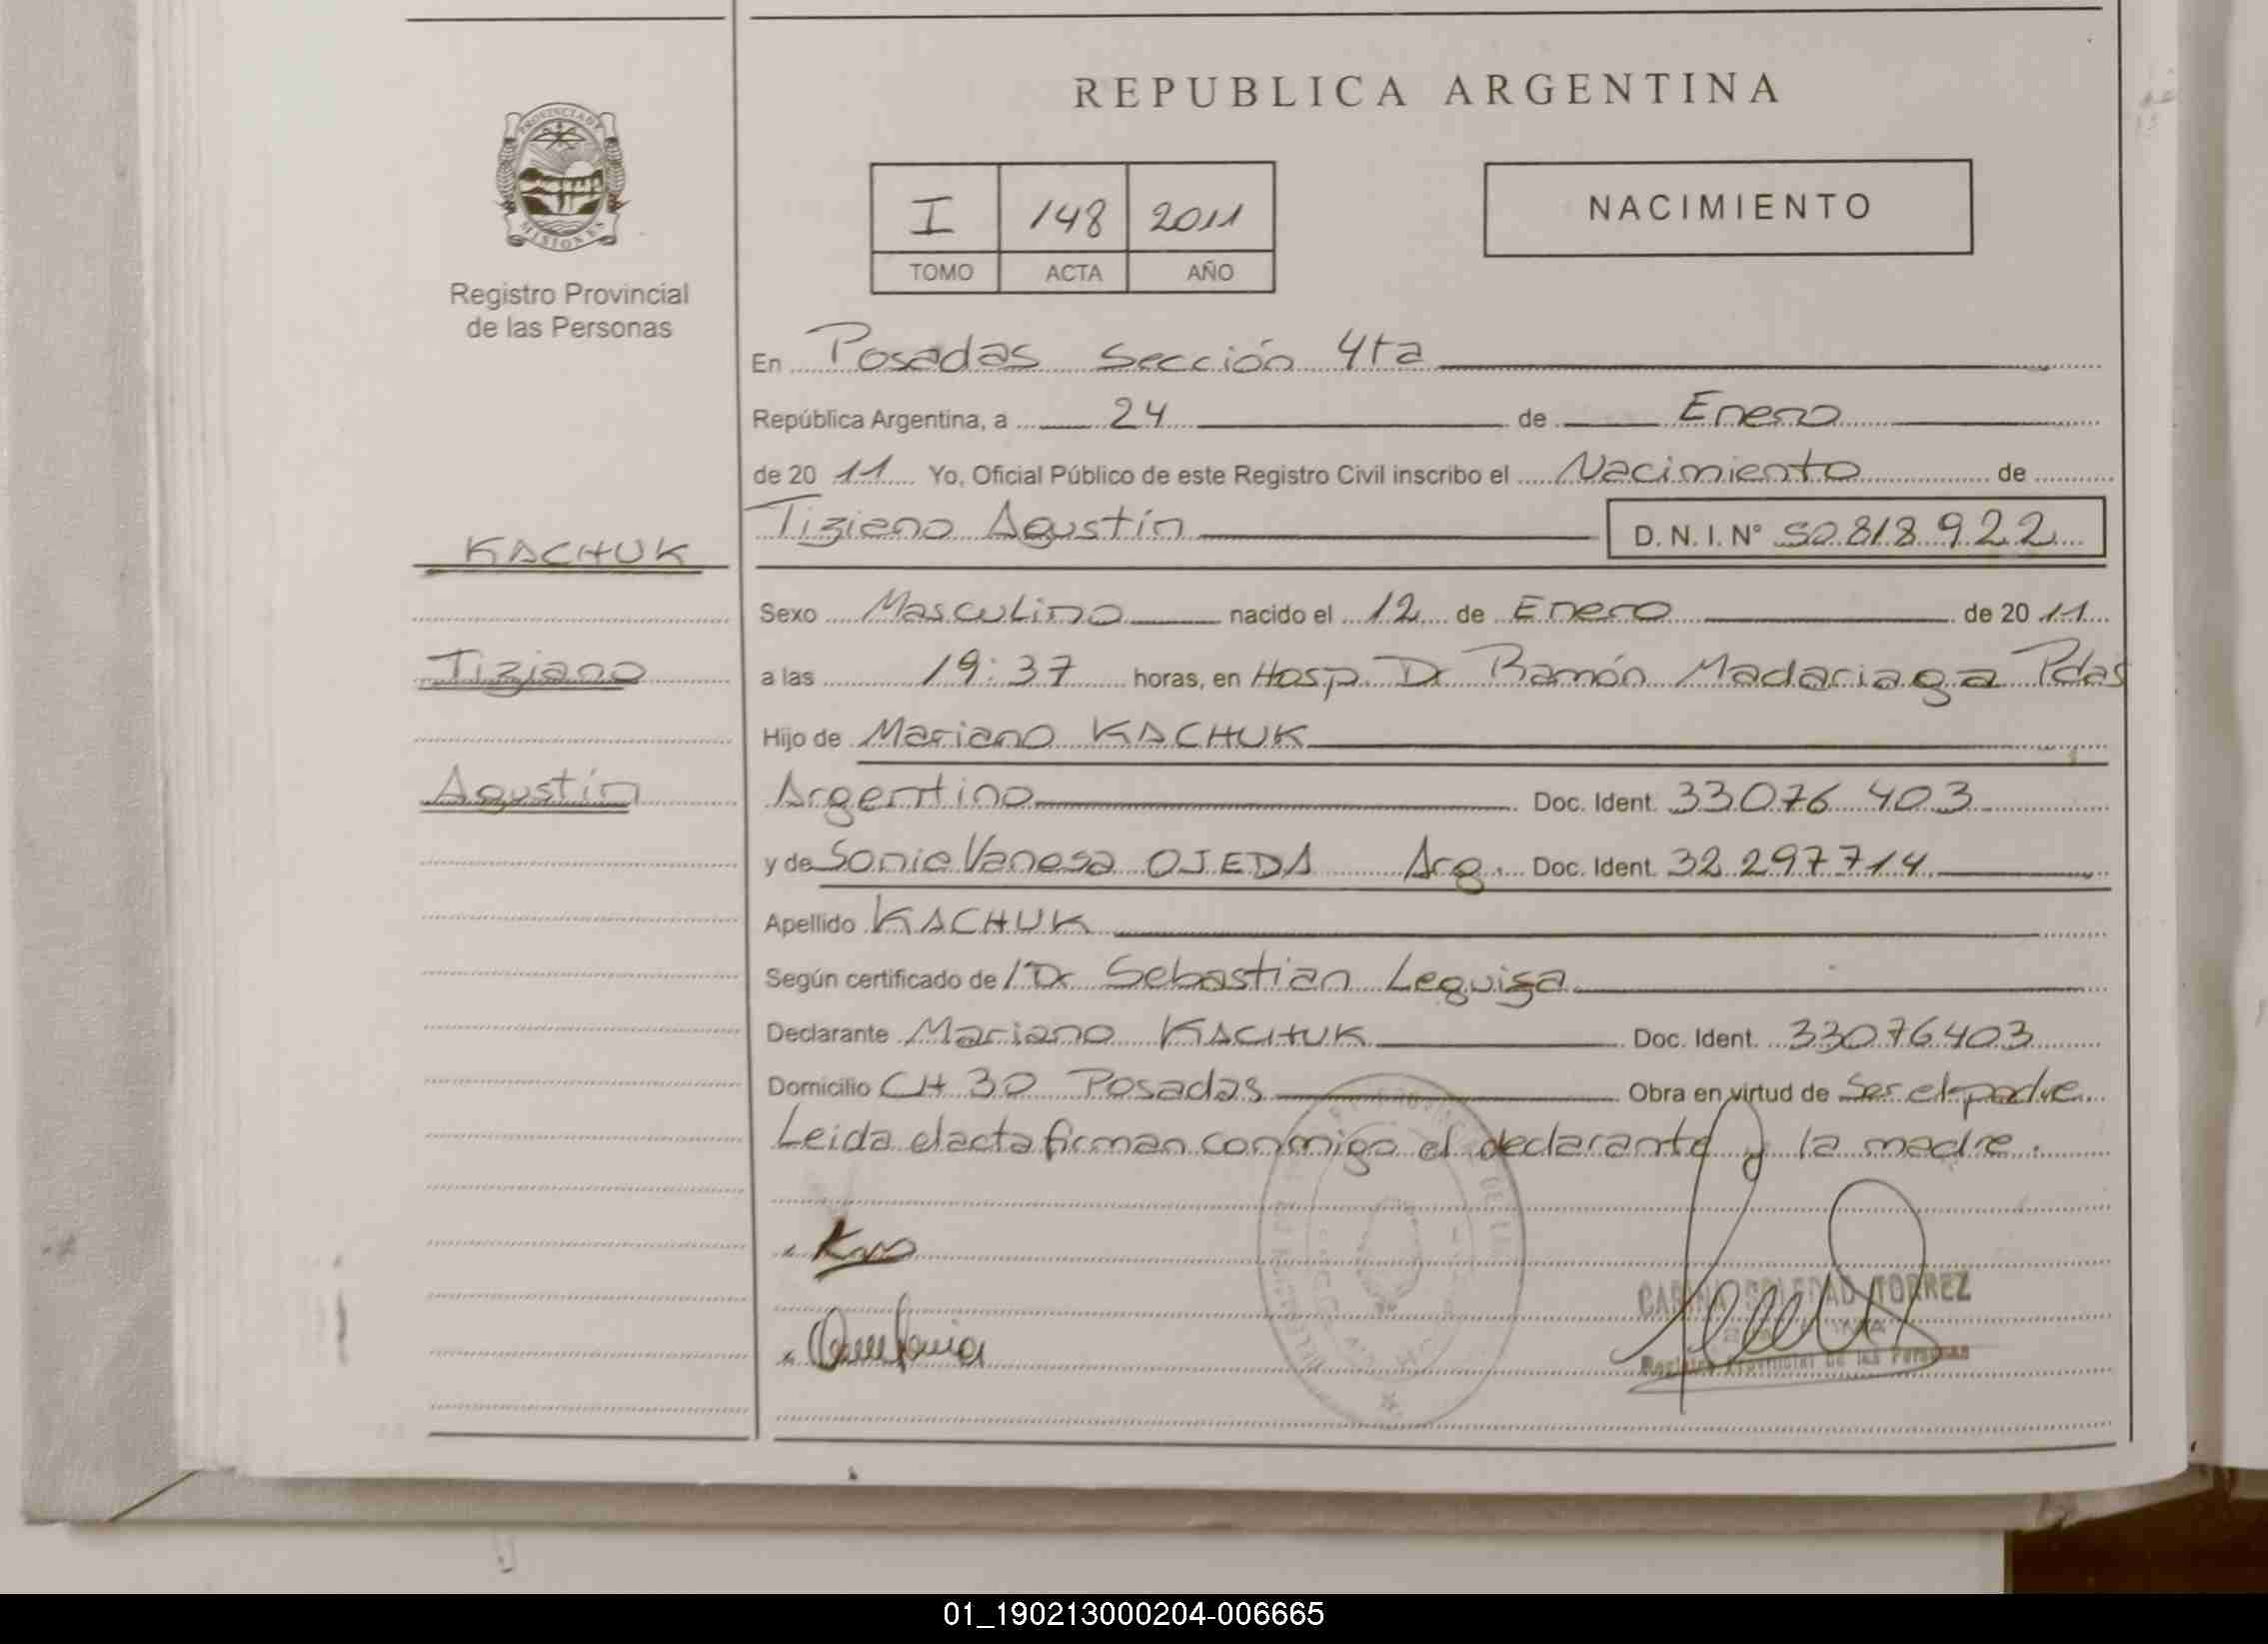 REPUBLICA ARGENTINA
PROVINCIA DE
MISIONES
Registro Provincial
de las Personas
I 148 2011
TOMO ACTA AÑO
NACIMIENTO
En Posadas Sección 4ta
República Argentina, a 24 de Enero
de 20 11 Yo, Oficial Público de este Registro Civil inscribo el Nacimiento de
Tiziano Agustín D. N. I. N° 50.818.922
KACHUK
Tiziano
Agustín
Sexo Masculino nacido el 12 de Enero de 20 11
a las 19:37 horas, en Hosp. Dr Ramón Madariaga Pdas
Hijo de Mariano KACHUK
Argentino Doc. Ident. 33076 403
y de Sonia Vanesa OJEDA Arg. Doc. Ident. 32 297 714
Apellido KACHUK
Según certificado de /Dr Sebastian Leguiza
Declarante Mariano KACHUK Doc. Ident. 33076403
Domicilio CH 30 Posadas Obra en virtud de Ser el padre
Leida el acta firman conmigo el declarante y la madre.
CARINA SOLEDAD TORREZ
Registro Provincial de las Personas
01_190213000204-006665